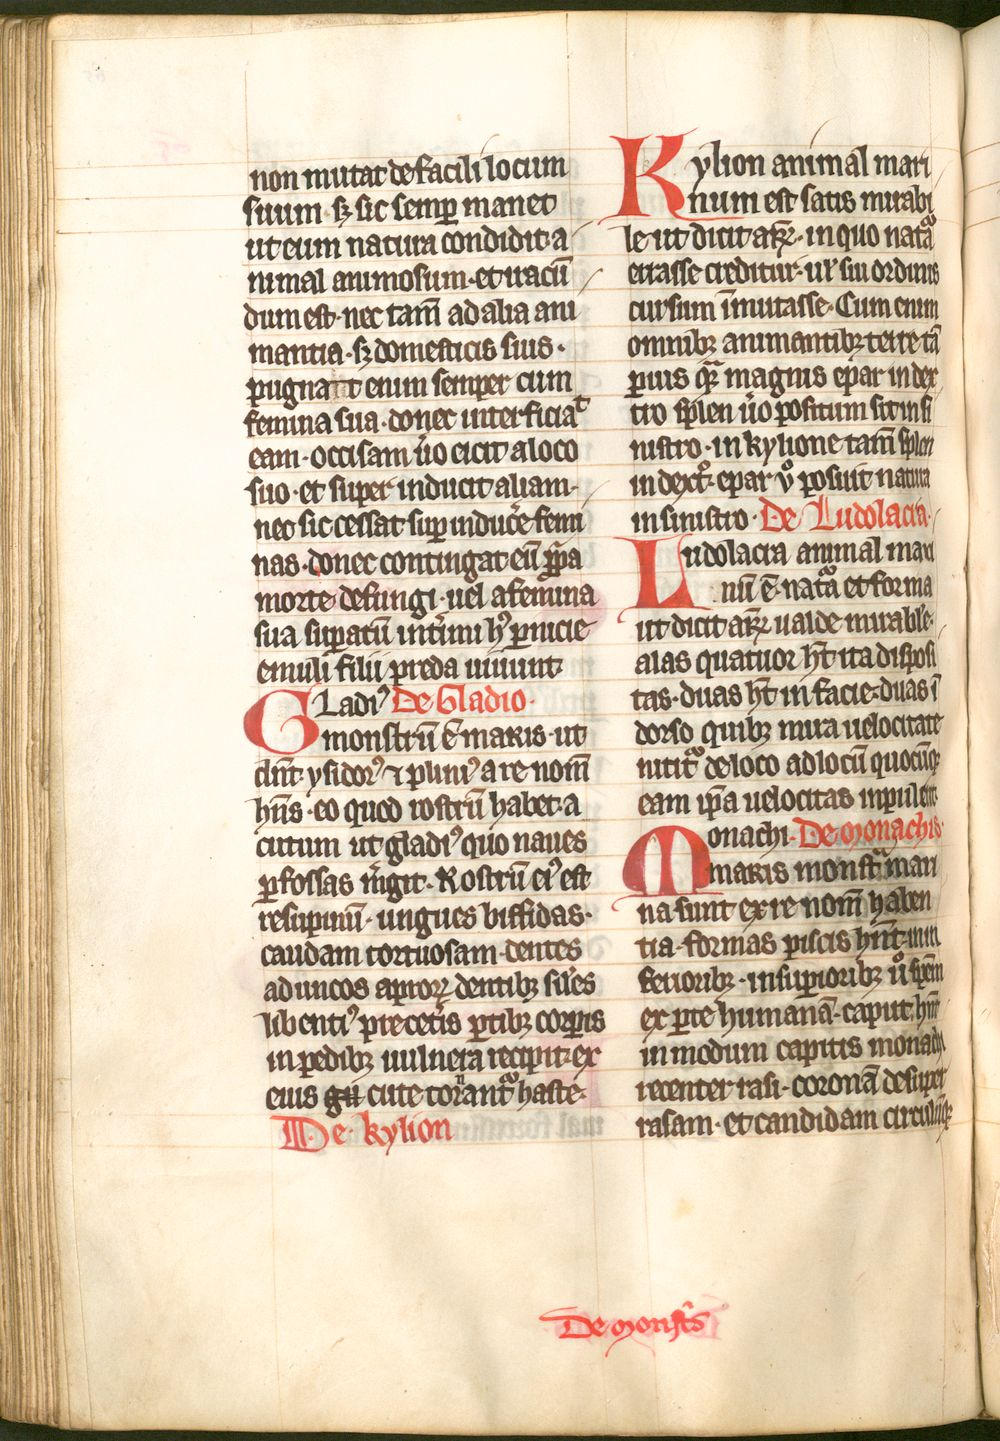 non mutat de facili locum
suum · sꝫ sic semꝑ manet
ut eum natura condidit · a
nimal animosum · et iracū
dum est · nec tam̄ ad alia ani
mantia · sꝫ domesticis suis ·
pugnant enim semper cum
femina sua · donec interficiat
eam · occisam ūo eicit a loco
suo · et super inducit aliam ·
nec sic cessat suꝑ induc̄e femi
nas · donec contingat eū ꝓpͣa
morte defungi · uel a femina
sua suꝑatū int̓imi hꝰ ꝑnicie
emuli filii preda uiuunt
Gladiꝰ De Gladio ·
monstrū ē maris · ut
dn̄t ysidorꝰ ⁊ pliniꝰ a re nom̄
hn̄s · eo quod rostrū habet · a
cutum ut gladiꝰ quo naues
ꝑfossas m̓git · Rostrū eiꝰ est
resupinū · ungues biffidas ·
caudam tortuosam · dentes
aduncos aproꝝ dentibꝫ sil̓es
libentiꝰ pre cet̓is ꝑtibꝫ corꝑis
in pedibꝫ uulnera recipit · ex
eius cute tornantͣ haste ·
De kylion
Kylion animal mari
num est satis mirabi
le ut dicit arꝝ · in quo natͣa
errasse creditur · ul̓ sui ordinis
cursum īmutasse · Cum enim
omnibꝫ animantibꝫ terre tā
ꝑuis qͣꝫ magnis epar in dex
tro splen ūo positum sit in si
nistro · in kylione tam̄ splen
in dext͛ · epar v̊ posuit natura
in sinistro · De Ludolacra ·
Ludolacra animal mari
nū ē · natͣa et forma
ut dicit arꝝ ualde mirabl̓e ·
alas quatuor hꝫ ita disposi
tas · duas hꝫ in facie · duas ī
dorso quibꝫ mira uelocitate
nitit᷑ de loco ad locū quocūqꝫ
eam ip̄a uelocitas inpulerit
Monachi · De monachis ·
maris monstͣ mari
na sunt ex re nom̄ haben
tia · formas piscis hn̄t · in in
ferioribꝫ · in suꝑioribꝫ ūo spēm
ex ꝑte humanā · caput hn̄t
in modum capitis monachi
recenter rasi · coronā desuper
rasam · et candidam circulūqꝫ
De monst̓s